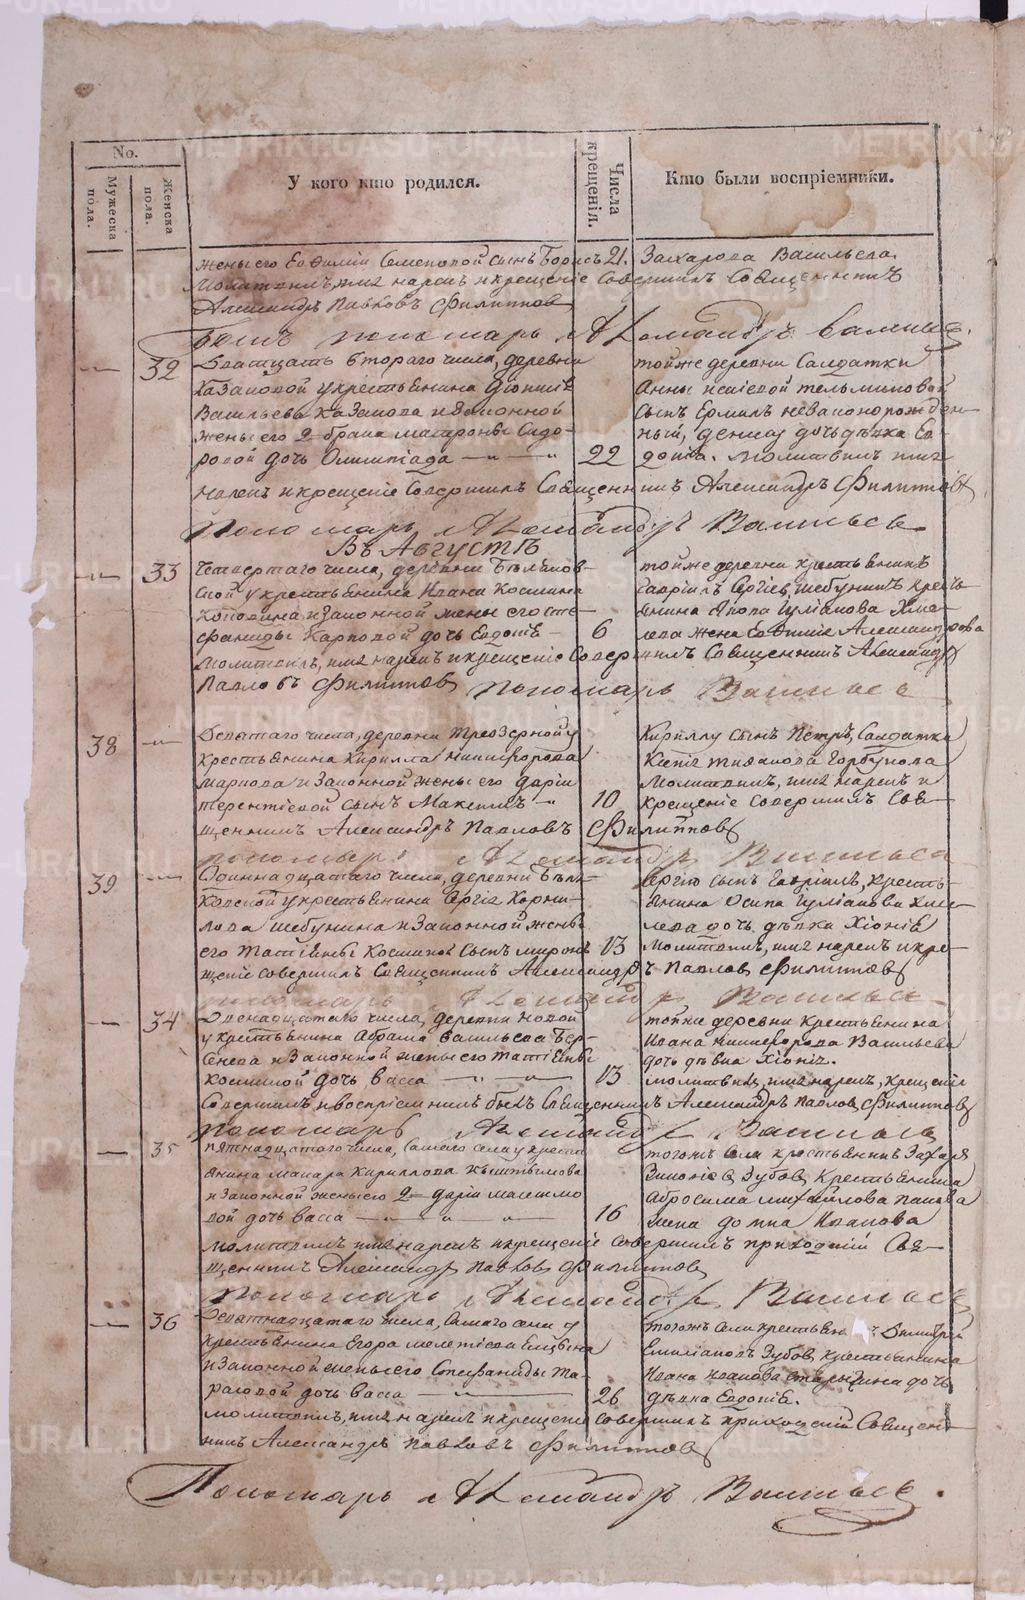 No.
Мужеска пола.
Женска пола.
У кого кто родился.
Числа крещенiя.
Кто были воспрiемники.
жены его Евфимiи Семеновой сынъ Борисъ 21. Захарова Васильева.
Молитвилъ, имя нарекъ и крещенiе совершилъ Священникъ
Александръ Павловъ Филиповъ
пономарь Александръ Васильевъ.
32
Дватцать втораго числа, деревни
Казаковой у крестьянина
Васильева Казакова и законной
жены его 2 брака Матроны Сидо-
ровой дочь Олимпiада
22
тойже деревни Салдатки
Анны
сынъ Ермилъ незаконорожден-
ный, дочь дѣвка Ев-
докiя. Молитвилъ имя
нарекъ и крещенiе Совершилъ Священникъ Александръ Филиповъ
Пономарь Александръ Васильевъ
Въ Августѣ
33
Четвертаго числа, деревни
ской у крестьянина Ивана Космина
и законной жены его Сте-
фаниды Карповой дочь Евдокiя
6
тойже деревни крестьянинъ
Гаврiилъ Сергiев Шебунинъ, крест-
янина
лева жена Евфимiя Александрова
Молитвилъ, имя нарекъ и крещенiе Совершилъ Священникъ Александръ
Павловъ Филиповъ Пономарь Васильевъ
38
Девятаго числа, деревни Треозерной у
Крестьянина Кирилла Никифорова
Маркова и Законной жены его Дарiи
Терентiевой сынъ Максимъ
10
Кириллу сынъ Петръ, Салдатка
Горбунова
Молитвилъ, имя нарекъ и
крещенiе совершилъ Свя-
щенникъ Александръ Павловъ Филиповъ
пономарь Александръ Васильевъ
39
Одиннадцатаго числа, деревни
у крестьянина Сергiя Корни-
лова Шебунина и Законной жены
его Татiяны Косминой Сынъ Миронъ
13
Сергiю сынъ Гаврiилъ, кресть-
янина Осипа
лева дочь дѣвка Хiонiя
Молитвилъ, имя нарекъ и кре-
щенiе совершилъ Священникъ Александръ Павлов Филиповъ
пономарь Александръ Васильевъ
34
Двенадцатаго числа, деревни Новой
у крестьянина Абрама Васильева
и Законной жены его Татiяны
Косминой дочь Васса
13
тойже деревни Крестьянина
Ивана Никифорова Васильева
дочь дѣвка Хiонiя.
молитвилъ, имя нарекъ, крещенiе
Совершилъ и воспрiемникъ былъ Священникъ Александръ Павлов Филиповъ
пономарь Александръ Васильевъ
35
пятнадцатого числа, самаго села у крест-
янина Макара Кириллова Кыштымова
и Законной жены его 2 Дарiи Максимо-
вой дочь Васса
16
тогожъ Села крестьянинъ Захаръ
Зубов, Крестьянина
Абросима Михайлова
жена Домна Иванова
молитвилъ имя нарекъ и крещенiе совершилъ приходскiй Свя-
щенникъ Александръ Павловъ Филиповъ
пономарь Александръ Васильевъ
36
Девятнадцатаго числа, Самаго села у
крестьянина Егора Мелетiева
и Законной жены его Стефаниды Та-
расовой дочь Васса
26
тогожъ Села крестьянинъ Димитрiй
Емилiановъ Зубов, крестьянина
Ивана Иванова дочь
дѣвка Евдокiя.
молитвилъ, имя нарекъ и крещенiе совершилъ приходскiй Священ-
никъ Александръ Павловъ Филиповъ
Пономарь Александръ Васильевъ.
METRIKI.GASO-URAL.RU